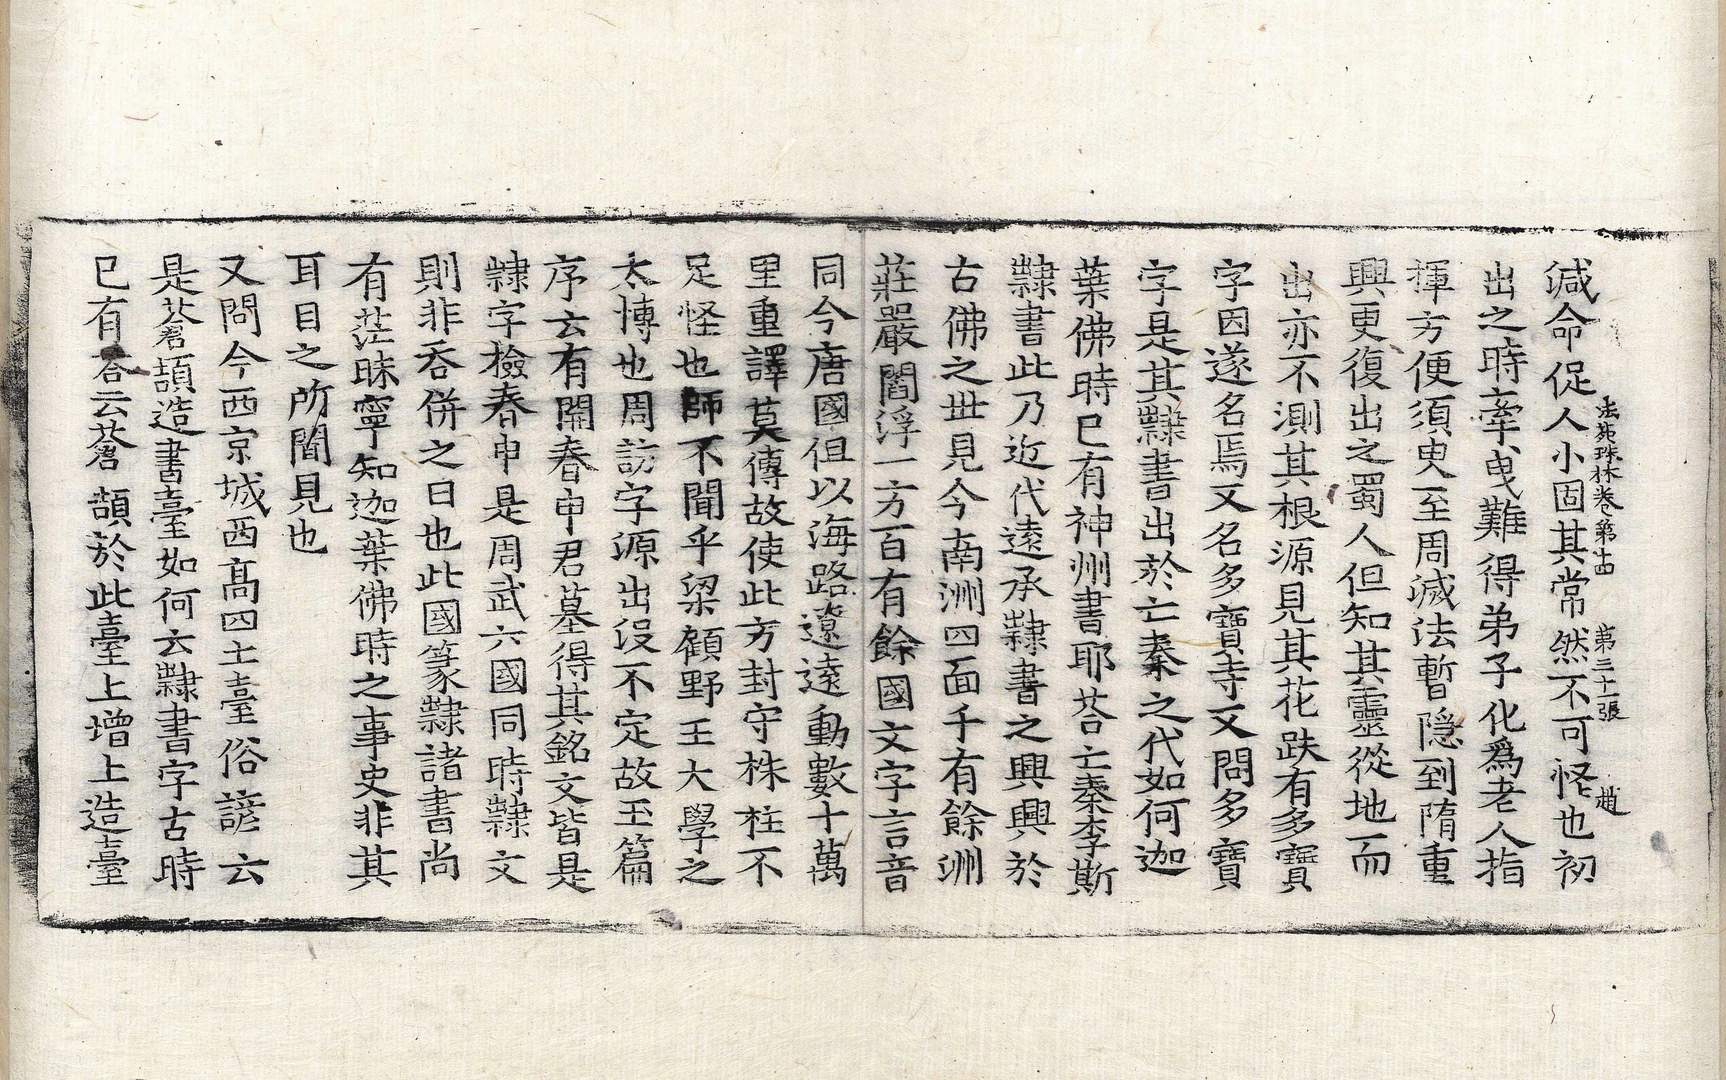 减命促人小固其常然不可恠也初
法苑珠林卷第十四 第三十一張 趙
出之時牽曳難得弟子化爲老人指
揮方便須臾至周滅法暫隐到隋重
興更復出之蜀人但知其靈從地而
出亦不測其根源見其花趺有多寳
字因遂名焉又名多寳寺又問多寳
字是其隷書出於亡秦之代如何迦
葉佛時已有神州書耶荅亡秦李斯
隷書此乃近代遠承隷書之興興於
古佛之丗見今南洲四面千有餘洲
莊嚴閻浮一方百有餘國文字言音
同今唐國但以海路遼遠動數十萬
里重譯莫傳故使此方封守株柱不
足怪也師不聞乎梁顧野王大學之
太博也周訪字源出没不定故玉篇
序云有開春申君墓得其銘文皆是
隷字檢春申是周武六國同時隷文
則非吞併之日也此國篆隷諸書尚
有茫昧寧知迦葉佛時之事史非其
耳目之所聞見也
又問今西京城西髙四土臺俗諺云
是蒼頡造書臺如何云隷書字古時
已有荅云蒼頡於此臺上增上造臺